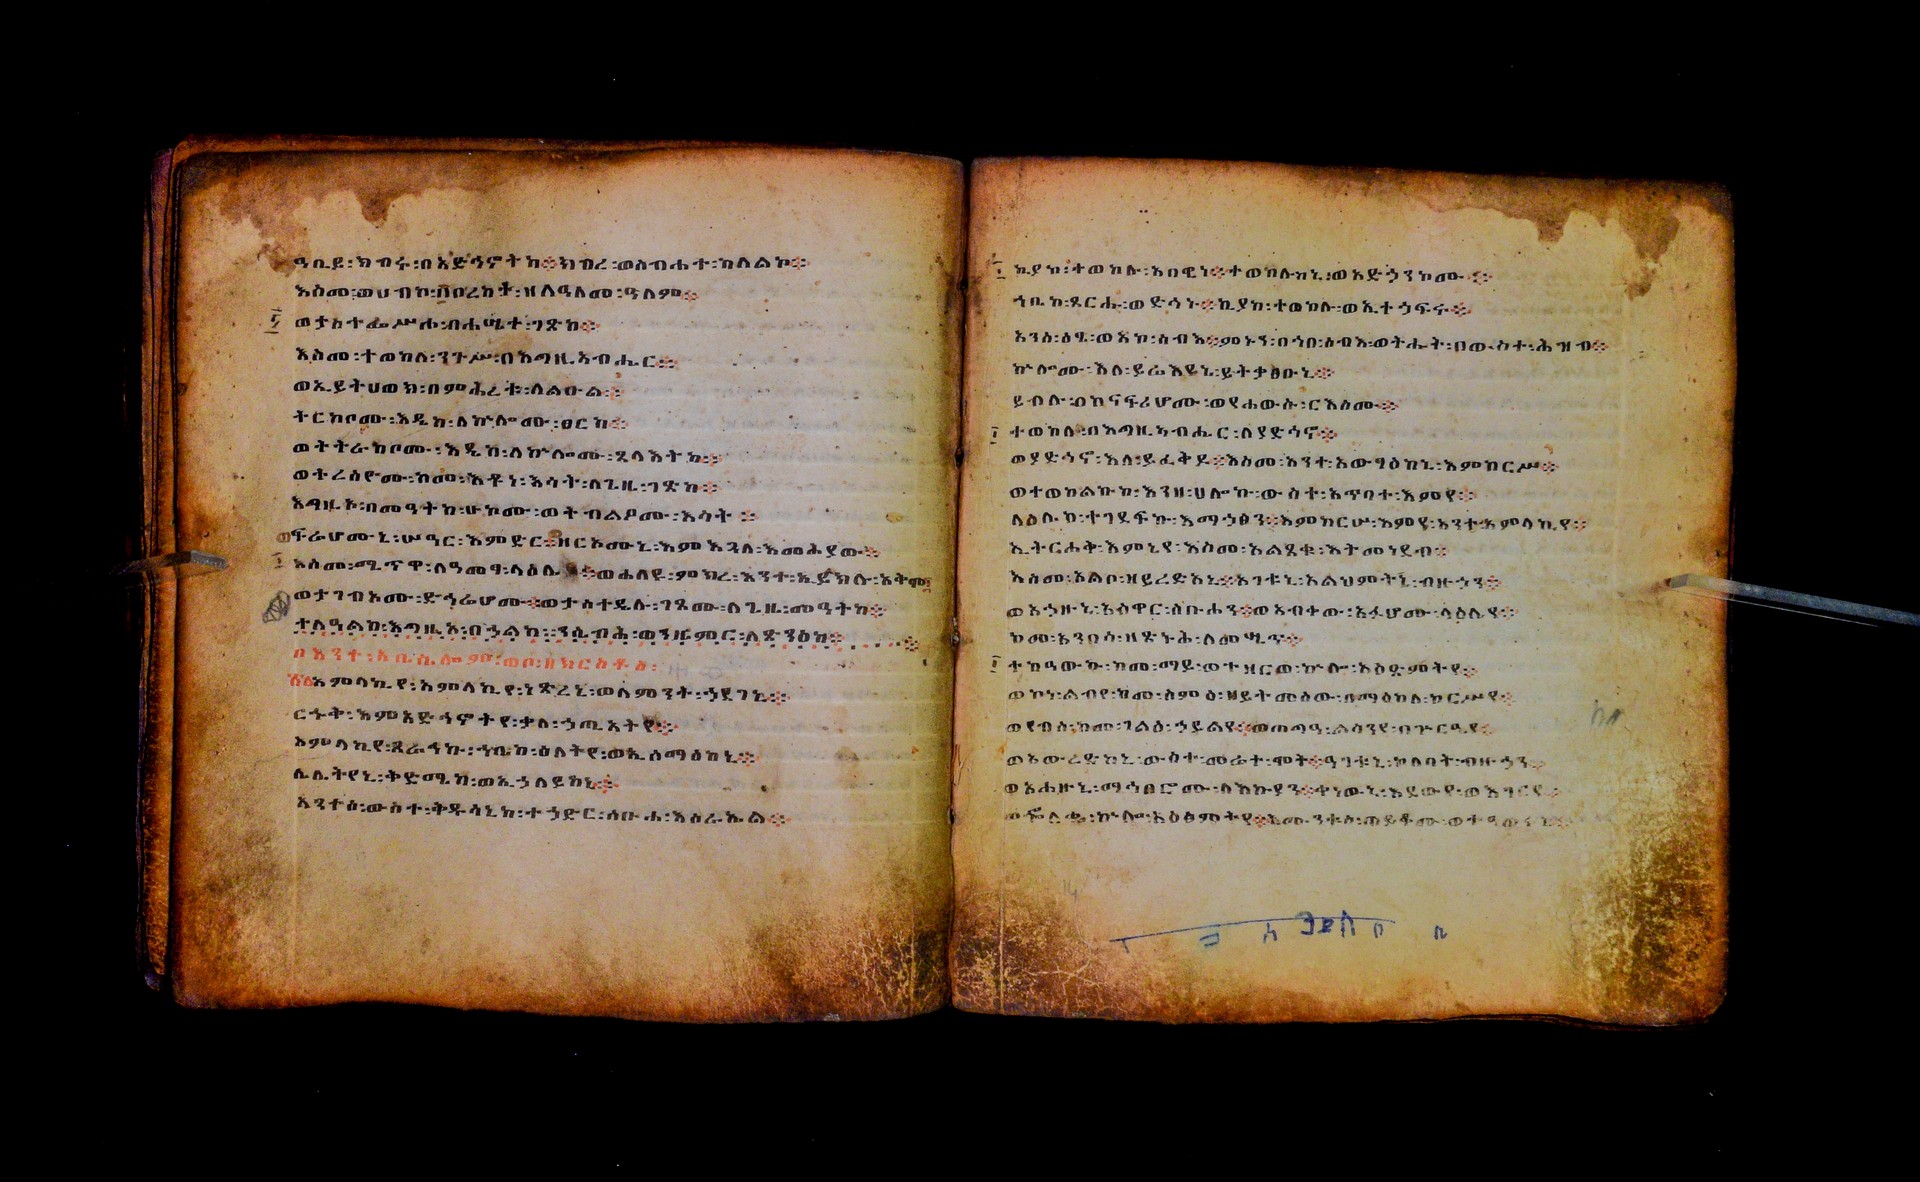 ዓቢይ፡ክብሩ፡በአድኅኖትከ፨ክብረ፡ወስብሐተ፡ከለልኮ፨
እስመ፡ወሀብኮ፡በረከተ፡ዘለዓለመ፡ዓለም፨
ወታስተፌሥሖ፡በሐሤተ፡ገጽከ፨
እስመ፡ተወከለ፡ንጉሥ፡በእግዚአብሔር፨
ወኢይትሀወክ፡በምሕረቱ፡ለልዑል፨
ትርከቦሙ፡እዴከ፡ለኵሎሙ፡ፀርከ፨
ወትትራከቦሙ፡እዴከ፡ለኵሎሙ፡ጸላእትከ፨
ወትረስዮሙ፡ከመ፡እቶነ፡እሳት፡ለጊዜ፡ገጽከ፨
እግዚኦ፡በመዓትከ፡ሁኮሙ፡ወትብልዖሙ፡እሳት፨
ወፍሬሆሙኒ፡ሠዓር፡እምድር፨ዘርኦሙኒ፡እምእጓለ፡እመሕያው፨
እስመ፡ሜጥዋ፡ለዓመፃ፡ላዕሌከ፨ወሐለዩ፡ምክረ፡እንተ፡ኢይክሉ፡አቅሞ
ወታገብኦሙ፡ድኅሬሆሙ፨ወታስተዴሉ፡ገጾሙ፡ለጊዜ፡መዓትከ፨
ተለዓልከ፡እግዚኦ፡በኃልከ፡ንሴብሕ፡ወንዜምር፡ለጽንዕከ፨
በእንተ፡አቤሴሎም፡ወቦ፡ዘክርስቶስ፡
አምላኪየ፡አምላኪየ፡ነጽረኒ፡ወለምንት፡ኃደገኒ፨
ርኁቅ፡እምአድኅኖትየ፡ቃለ፡ኃጢአትየ፨
አምላኪየ፡ጸራኅኩ፡ኀቤከ፡ዕለትየ፡ወኢሰማዕከኒ፨
ሌሊትየኒ፡ቅድሜከ፡ወኢኃለይከኒ፨
አንተሰ፡ውስተ፡ቅዱሳኒከ፡ተኃድር፡ስቡሐ፡እስራኤል፨
ኪያከ፡ተወከሉ፡አበዊነ፨ተወከሉከኒ፡ወአድኃንኮሙ፨
ኀቤከ፡ጸርሑ፡ወድኅኑ፨ኪያከ፡ተወከሉ፡ወኢተኃፍሩ፨
አንሰ፡ዕፄ፡ወአኮ፡ሰብእ፨ምኑን፡በኀበ፡ሰብእ፡ወትሑት፡በውስተ፡ሕዝብ፨
ኵሎሙ፡እለ፡ይሬእዩኒ፡ይትቃፀቡኒ፨
ይብሉ፡በከናፍሪሆሙ፡ወየሐውሱ፡ርእሶሙ፨
ተወከለ፡በእግዚአብሔር፡ለያድኅኖ፨
ወያድኅኖ፡እለ፡ይፈቅዶ፨እስመ፡አንተ፡አውፃዕከኒ፡እምከርሥ፨
ወተወከልኩከ፡እንዘ፡ሀሎኩ፡ውስተ፡አጥባተ፡እምየ፨
ላዕሌከ፡ተገደፍኩ፡እማኅፀን፨እምከርሠ፡እምየ፡አንተ፡አምላኪየ፨
ኢትርሐቅ፡እምኒየ፡እስመ፡አልጸቁ፡እትመነደብ፨
እስመ፡አልቦ፡ዘይረድአኒ፨አገቱኒ፡አልህምትኒ፡ብዙኃን፨
ወአኃዙኒ፡አስዋር፡ስቡሓን፨ወአብቀው፡አፉሆሙ፡ላዕሌየ፨
ከመ፡አንበሳ፡ዘጽኑሕ፡ለመሢጥ፨
ተከዓውኩ፡ከመ፡ማይ፡ወተዘርወ፡ኵሉ፡አዕፅምትየ፨
ወኮነ፡ልብየ፡ከመ፡ሰምዕ፡ዘይትመሰው፡በማዕከለ፡ከርሥየ፨
ወየብሰ፡ከመ፡ገልዕ፡ኃይልየ፨ወጠግዓ፡ልሳንየ፡በጕርዔየ፨
ወአውረድከኒ፡ውስተ፡መሬተ፡ሞት፨ዓገቱኒ፡ከለባት፡ብዙኃን፨
ወአሐዙኒ፡ማኅበሮሙ፡ለእኩያን፨ቀነውኒ፡እደውየ፡ወእገርየ፨